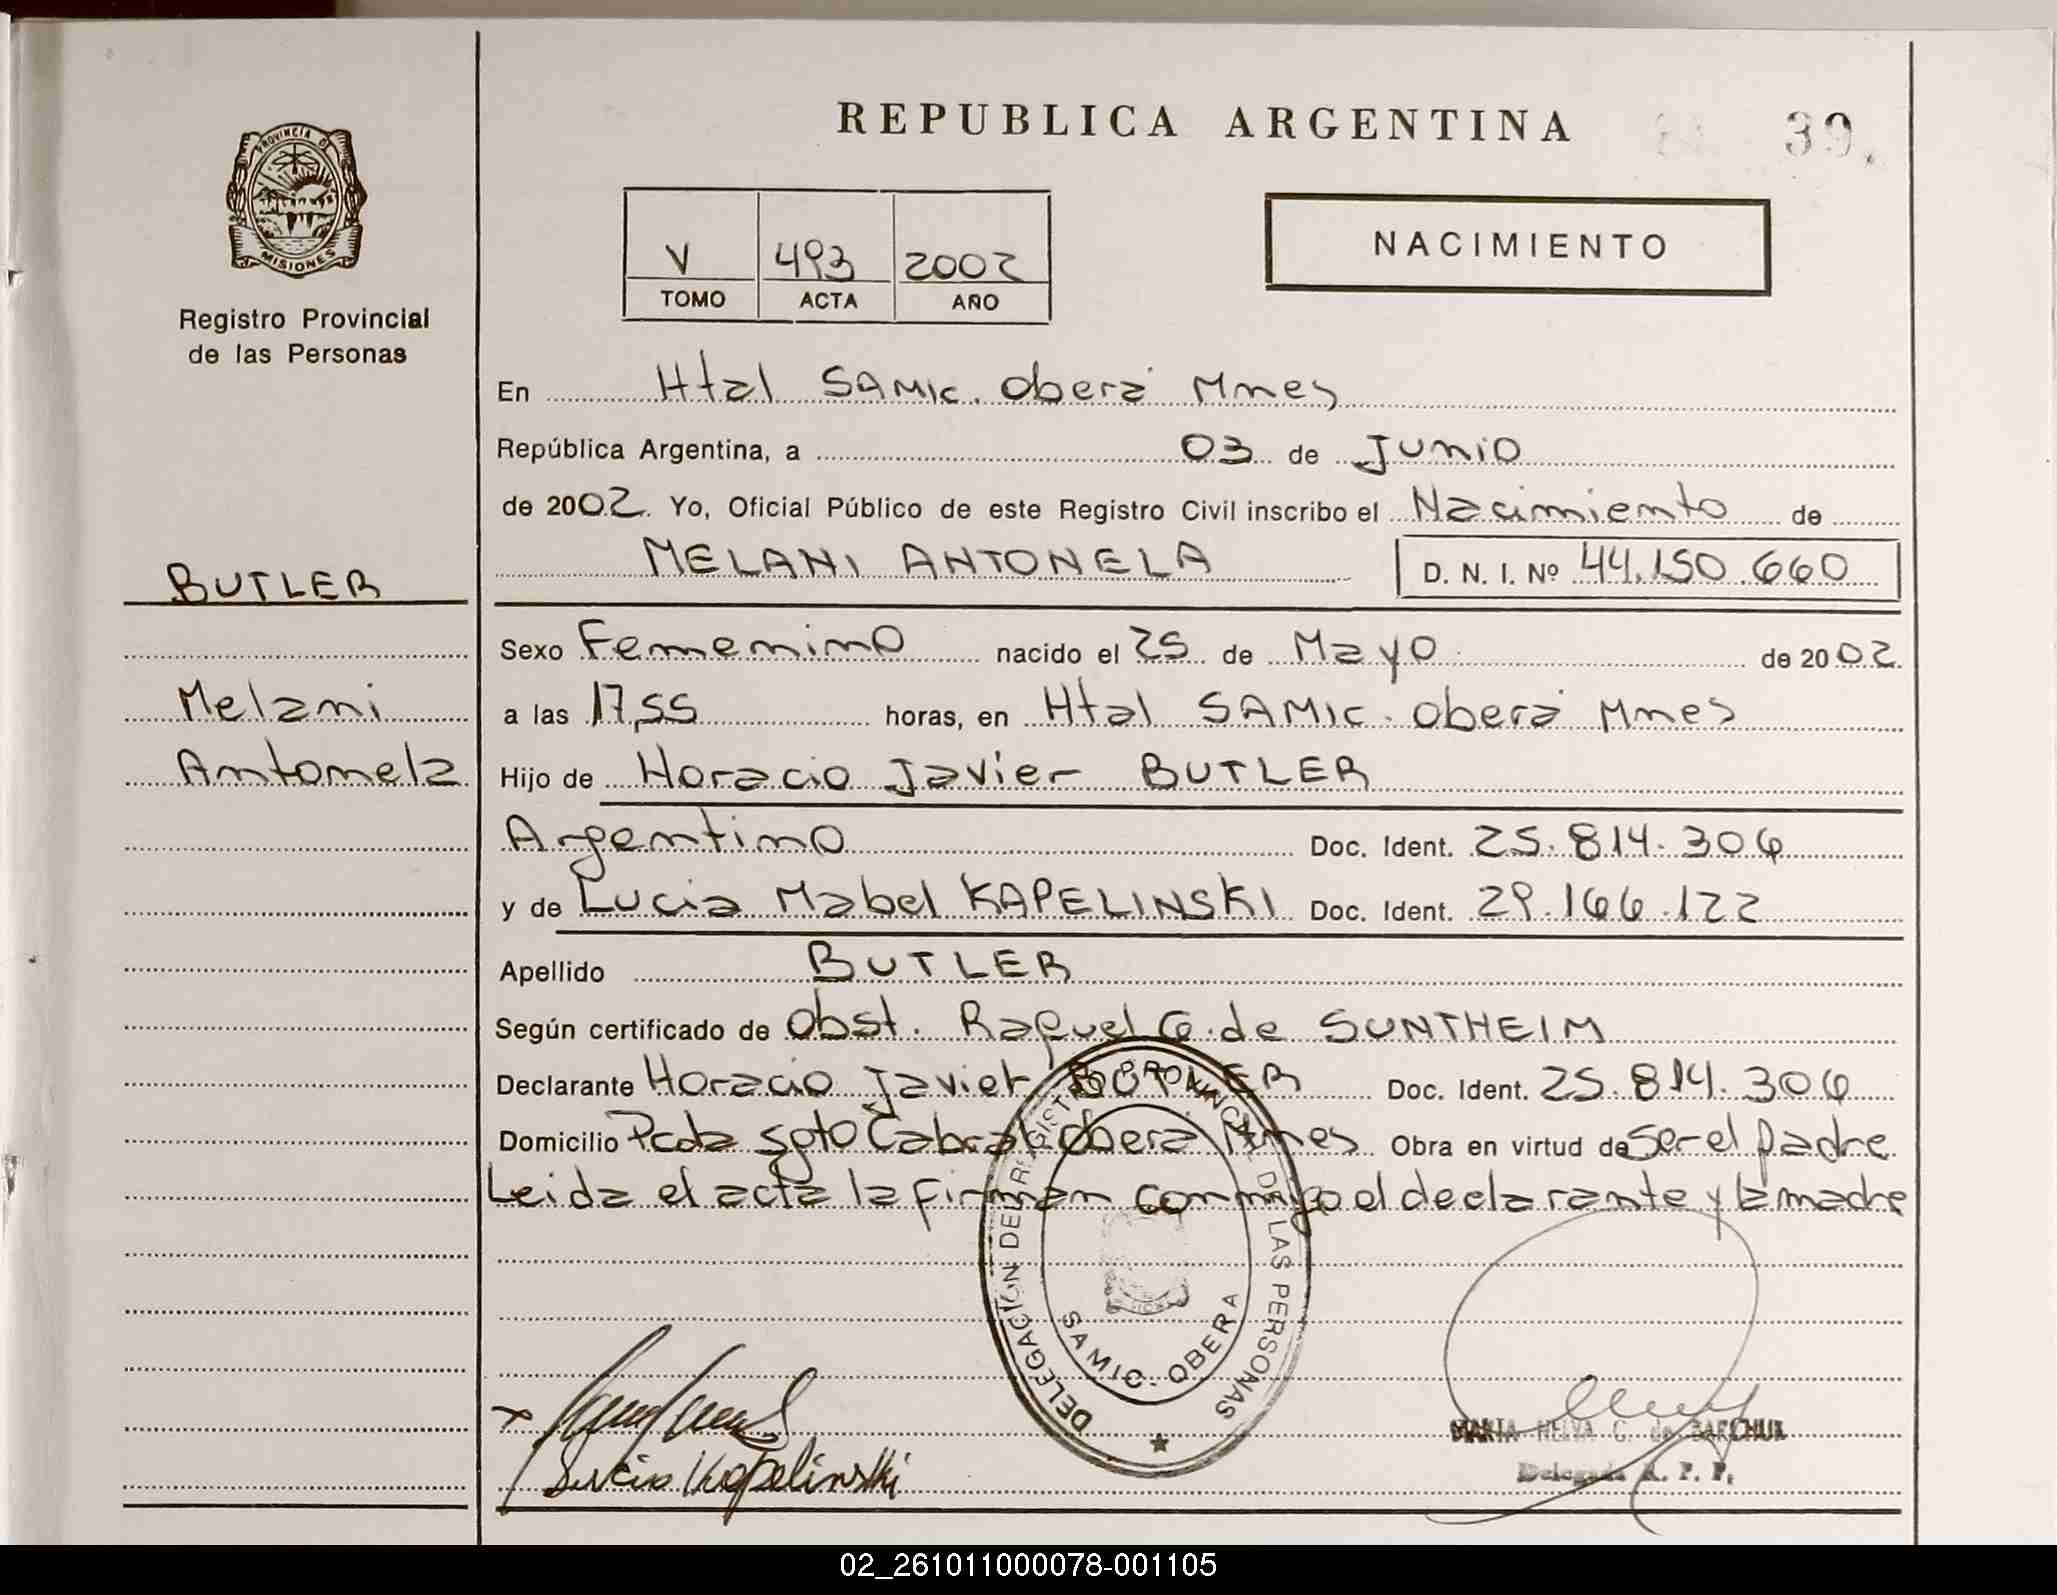 REPUBLICA ARGENTINA
39.
PROVINCIA DE
MISIONES
Registro Provincial
de las Personas
V 493 2002
TOMO ACTA AÑO
NACIMIENTO
En Htal SAMIC. Oberá Mnes
República Argentina, a 03 de Junio
de 2002. Yo, Oficial Público de este Registro Civil inscribo el Nacimiento de
MELANI ANTONELA D. N. I. Nº 44.150.660
BUTLER
Melani
Antonela
Sexo Femenino nacido el 25 de Mayo de 2002.
a las 17,55 horas, en Htal SAMIC. Oberá Mnes
Hijo de Horacio Javier BUTLER
Argentino Doc. Ident. 25.814.306
y de Lucia Mabel KAPELINSKI Doc. Ident. 29.166.122
Apellido BUTLER
Según certificado de Obst. Raquel G. de SUNTHEIM
Declarante Horacio Javier BUTLER Doc. Ident. 25.814.306
Domicilio Pcda Sgto Cabral Oberá Mnes Obra en virtud de Ser el padre
Leida el acta la firman conmigo el declarante y la madre
DELEGACIÓN DEL REGISTRO PROVINCIAL DE LAS PERSONAS
SAMIC - OBERA
Lucia Kapelinski
MARIA NELVA G. de BARCHUK
Delegada R. P. P.
02_261011000078-001105